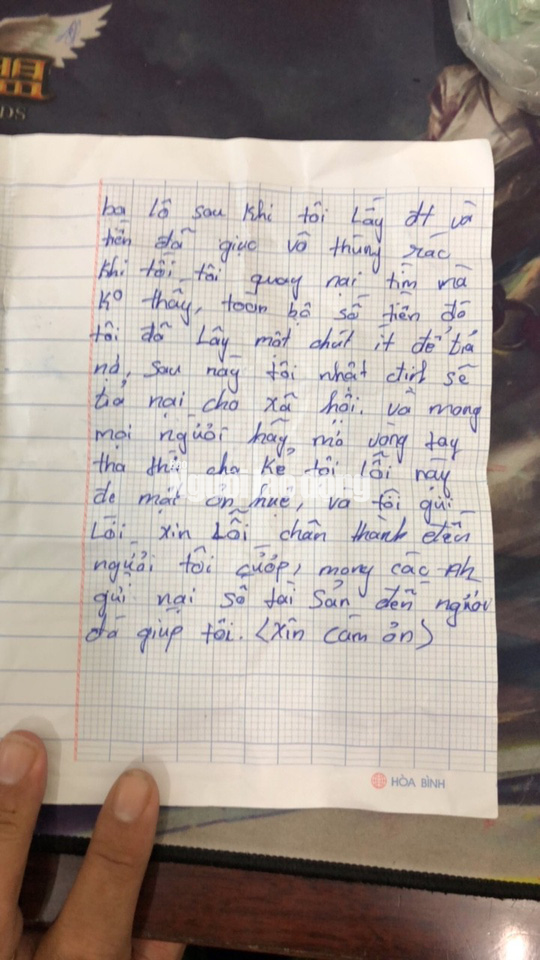 DS
ba lô sau khi tôi lấy đt và
tiền đã giục vô thùng rác
khi tối tôi quay nai tìm mà
ko thấy, toàn bộ số tiền đó
tôi đã lấy một chút ít để tiả
nợ, sau nay tôi nhất định sẽ
tiả nai cho xã hội. và mong
mọi người hãy mở vòng tay
tha thứ cho kẻ tội lỗi này
đc một ơn huệ, và tôi gửi
Lời xin Lỗi chân thành đến
người tôi cướp, mong các Ah
gửi nại số tài sản đến người
đó giúp tôi. (xin cảm ơn)
HÒA BÌNH